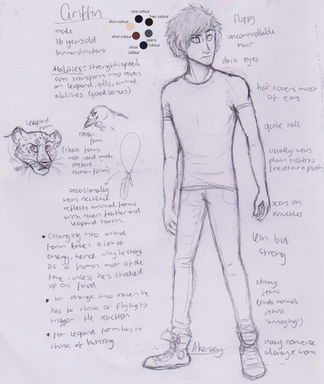 Griffin
male
16 years old
human/mutant
Abilities: strength, speed
can transform into raven
or leopard, gills, animal
abilities (good senses)
eye colour
skin colour
hair colour
shirt colour
jeans colour
shoe colour
leopard form
raven form
(these forms
not used much
prefers
human form)
occasionally
wears necklace
reflects animal forms
with raven feather and
leopard tooth.
• Changing into animal
form takes a lot of
energy, hence why he stays
as a human most of the
time, unless he's stocked
up on food
• to change into raven he
has to think of flying to
trigger the reaction
• for leopard form has to
think of hunting
floppy
uncontrollable
hair
dark eyes
hair covers most
of ears
quite tall
usually wears
plain t-shirts
scars on
knuckles
lean but
strong
skinny
jeans
(finds normal
jeans
annoying)
navy converse
always worn